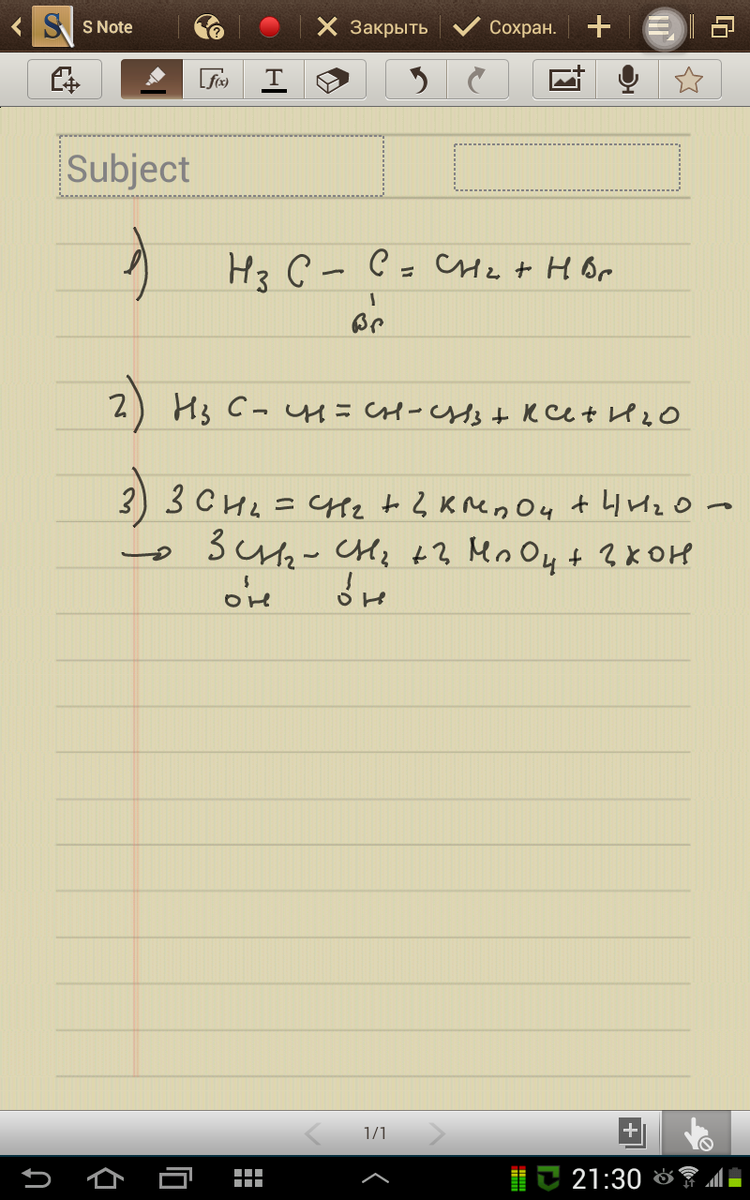 S Note
Закрыть
Сохран.
f(x)
T
Subject
1) H₃C – C = CH₂ + HBr
Br
2) H₃C – CH = CH – CH₃ + KCl + H₂O
3) 3CH₂ = CH₂ + 2KMnO₄ + 4H₂O →
→ 3CH₂ – CH₂ + 2MnO₄ + 2KOH
OH OH
1/1
21:30